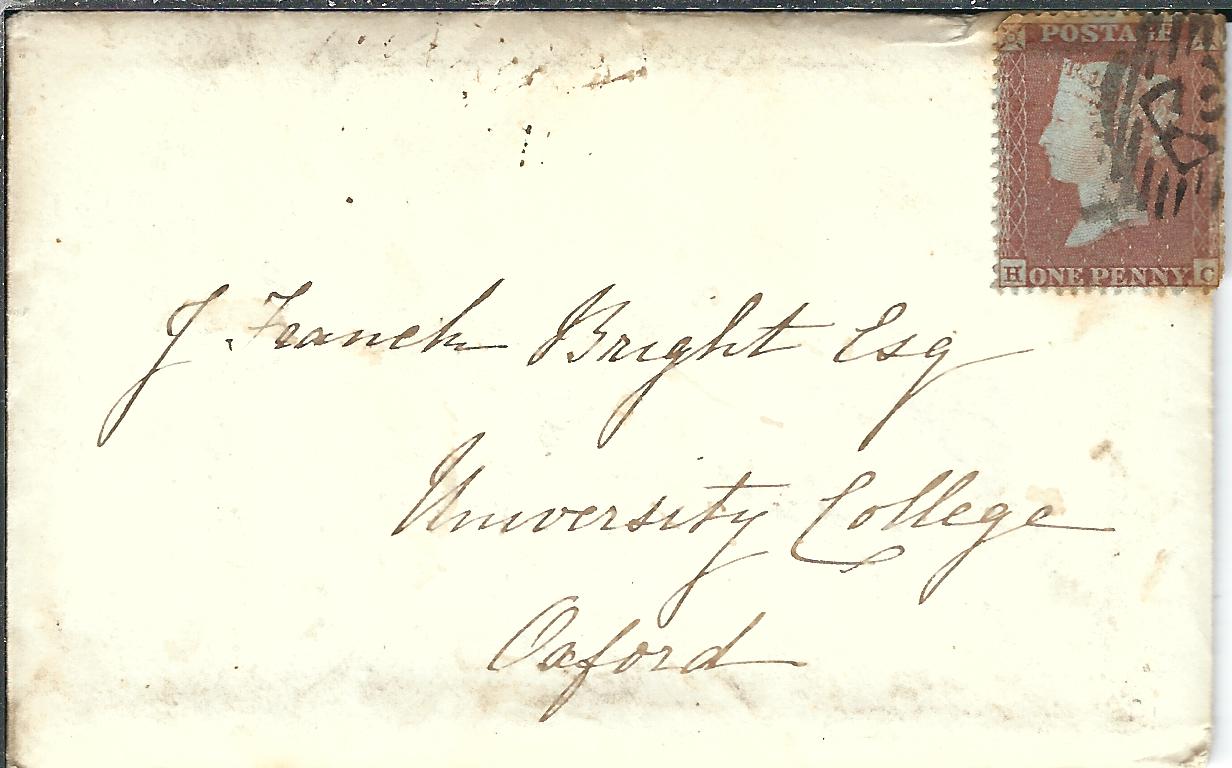 POSTAGE
J. Franck Bright Esq
University College
Oxford
H ONE PENNY C